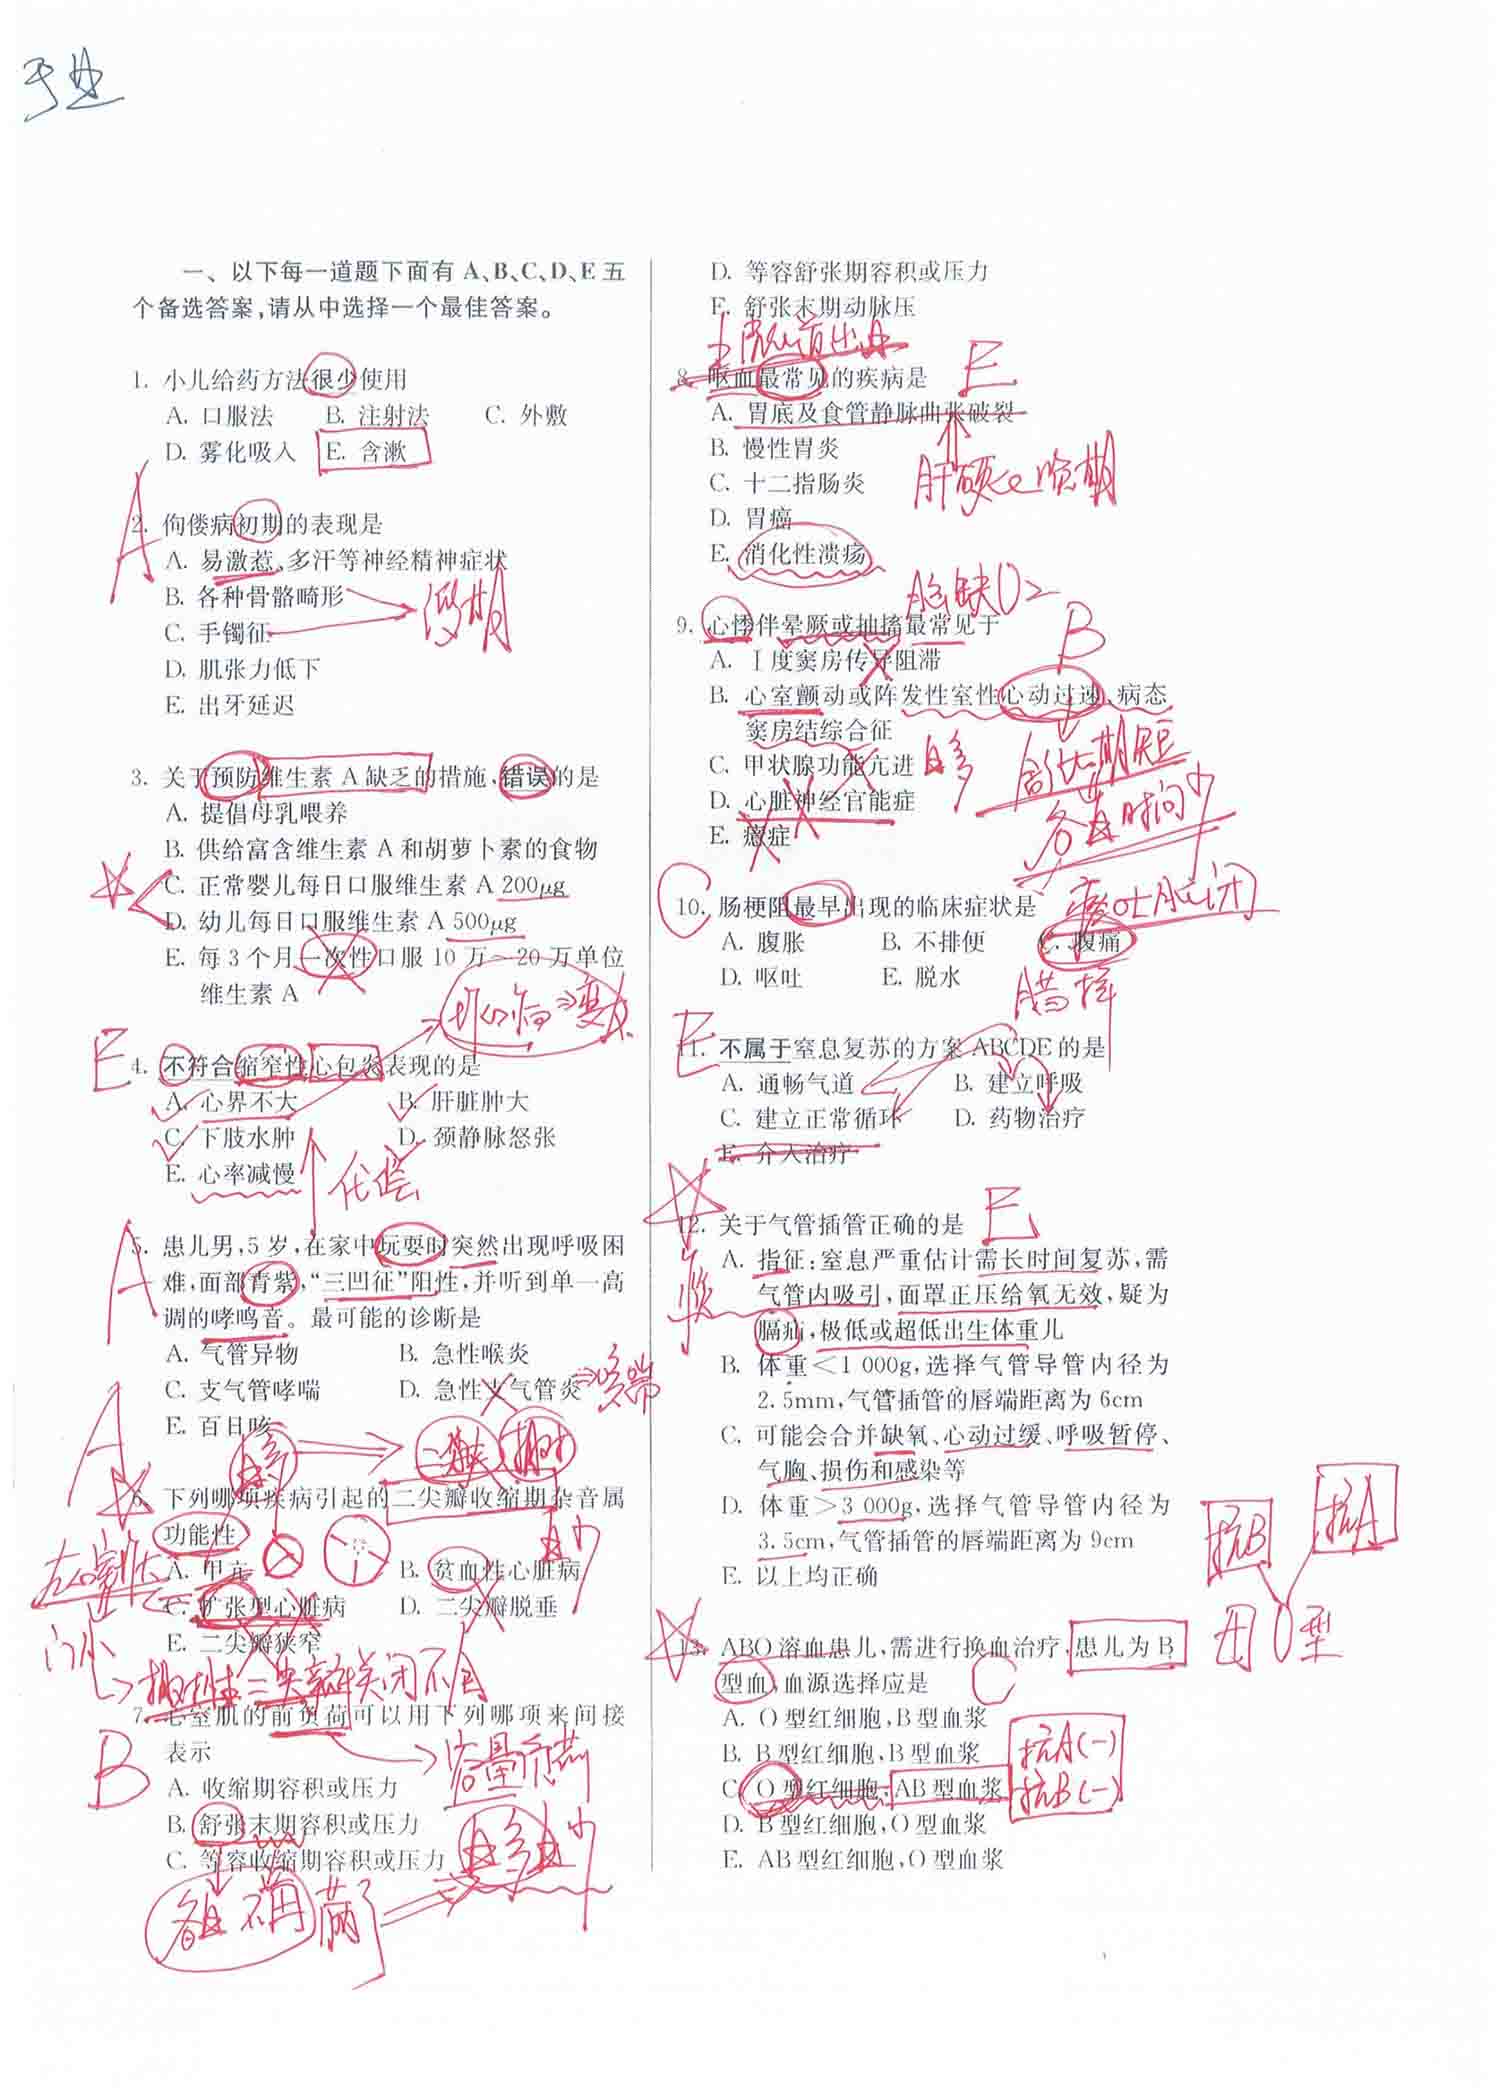 一、以下每一道题下面有 A、B、C、D、E 五
个备选答案,请从中选择一个最佳答案。
1. 小儿给药方法很少使用
A. 口服法 B. 注射法 C. 外敷
D. 雾化吸入 E. 含漱
A
2. 佝偻病初期的表现是
A. 易激惹、多汗等神经精神症状
B. 各种骨骼畸形
C. 手镯征
D. 肌张力低下
E. 出牙延迟
3. 关于预防维生素 A 缺乏的措施,错误的是
A. 提倡母乳喂养
B. 供给富含维生素 A 和胡萝卜素的食物
C. 正常婴儿每日口服维生素 A 200μg
D. 幼儿每日口服维生素 A 500μg
E. 每 3 个月一次性口服 10 万~20 万单位
维生素 A
E
4. 不符合缩窄性心包炎表现的是
A. 心界不大 B. 肝脏肿大
C. 下肢水肿 D. 颈静脉怒张
E. 心率减慢
代偿
A
5. 患儿男,5 岁,在家中玩耍时突然出现呼吸困
难,面部青紫,“三凹征”阳性,并听到单一高
调的哮鸣音。最可能的诊断是
A. 气管异物 B. 急性喉炎
C. 支气管哮喘 D. 急性支气管炎
E. 百日咳
A
6. 下列哪项疾病引起的二尖瓣收缩期杂音属
功能性
A. 甲亢 B. 贫血性心脏病
C. 扩张型心脏病 D. 二尖瓣脱垂
E. 二尖瓣狭窄
关闭不全
7. 心室肌的前负荷可以用下列哪项来间接
表示
容量负荷
B
A. 收缩期容积或压力
B. 舒张末期容积或压力
C. 等容收缩期容积或压力
D. 等容舒张期容积或压力
E. 舒张末期动脉压
8. 呕血最常见的疾病是
E
A. 胃底及食管静脉曲张破裂
B. 慢性胃炎
C. 十二指肠炎
D. 胃癌
E. 消化性溃疡
脑缺O2
9. 心悸伴晕厥或抽搐最常见于
B
A. Ⅰ度窦房传导阻滞
B. 心室颤动或阵发性室性心动过速、病态
窦房结综合征
C. 甲状腺功能亢进
D. 心脏神经官能症
E. 癔症
C
10. 肠梗阻最早出现的临床症状是
痛吐胀闭
A. 腹胀 B. 不排便 C. 腹痛
D. 呕吐 E. 脱水
E
11. 不属于窒息复苏的方案 ABCDE 的是
A. 通畅气道 B. 建立呼吸
C. 建立正常循环 D. 药物治疗
E. 介入治疗
12. 关于气管插管正确的是
E
A. 指征:窒息严重估计需长时间复苏,需
气管内吸引,面罩正压给氧无效,疑为
膈疝,极低或超低出生体重儿
B. 体重<1 000g,选择气管导管内径为
2.5mm,气管插管的唇端距离为 6cm
C. 可能会合并缺氧、心动过缓、呼吸暂停、
气胸、损伤和感染等
D. 体重>3 000g,选择气管导管内径为
3.5cm,气管插管的唇端距离为 9cm
E. 以上均正确
抗B 抗A
母O型
13. ABO 溶血患儿,需进行换血治疗,患儿为 B
型血,血源选择应是
C
A. O 型红细胞,B 型血浆
B. B 型红细胞,B 型血浆
C. O 型红细胞,AB 型血浆
抗A(-)
抗B(-)
D. B 型红细胞,O 型血浆
E. AB 型红细胞,O 型血浆